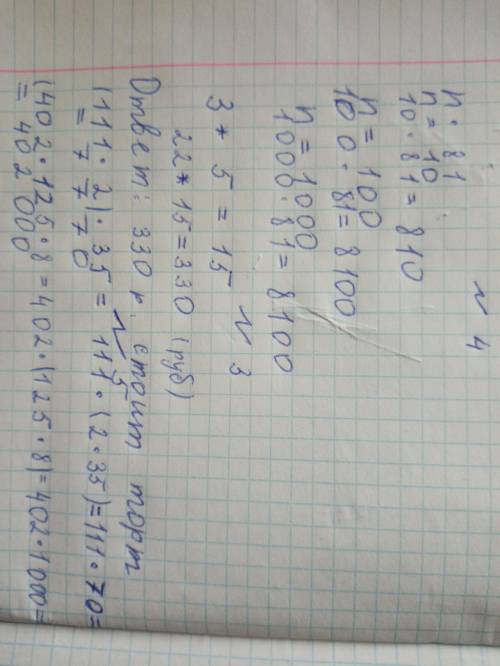 N 4
n · 81
n = 10
10 · 81 = 810
n = 100
100 · 81 = 8100
n = 1000
1000 · 81 = 8100
N 3
3 * 5 = 15
22 * 15 = 330 (руб)
Ответ: 330 р. стоит торт
N 5
(111 · 2) · 35 = 111 · (2 · 35) = 111 · 70 =
= 7770
(402 · 125 · 8 = 402 · (125 · 8) = 402 · 1000 =
= 402 000